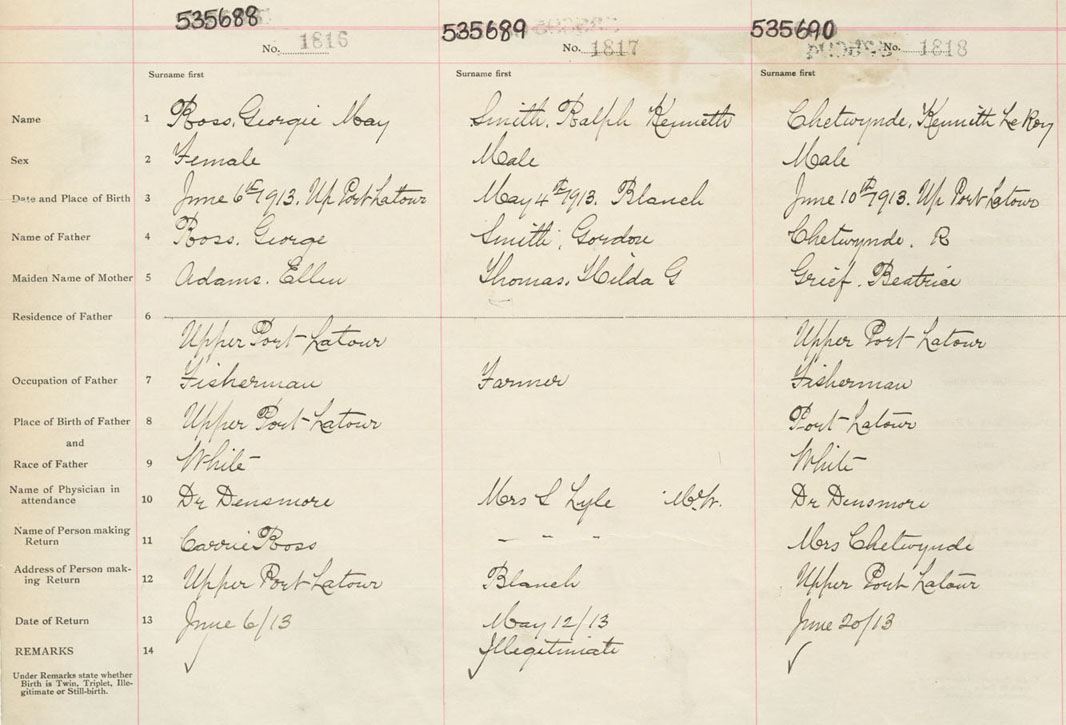 535688 535689 535690
No. 1816 No. 1817 No. 1818
Surname first Surname first Surname first
Name 1 Ross, Georgie May Smith, Ralph Kenneth Chetwynde, Kenneth LeRoy
Sex 2 Female Male Male
Date and Place of Birth 3 June 6th 1913. Up Port Latour May 4th 1913. Blanch June 10th 1913. Up Port Latour
Name of Father 4 Ross, George Smith, Gordon Chetwynde. R
Maiden Name of Mother 5 Adams. Ellen Thomas, Hilda G Grief. Beatrice
Residence of Father 6
Upper Port Latour Upper Port Latour
Occupation of Father 7 Fisherman Farmer Fisherman
Place of Birth of Father 8 Upper Port Latour Port Latour
and
Race of Father 9 White White
Name of Physician in
attendance 10 Dr Densmore Mrs S Lyle M.W. Dr Densmore
Name of Person making
Return 11 Carrie Ross - " " Mrs Chetwynde
Address of Person mak-
ing Return 12 Upper Port Latour Blanch Upper Port Latour
Date of Return 13 June 6/13 May 12/13 June 20/13
REMARKS 14 ✓ Illegitimate ✓
Under Remarks state whether
Birth is Twin, Triplet, Ille-
gitimate or Still-birth.